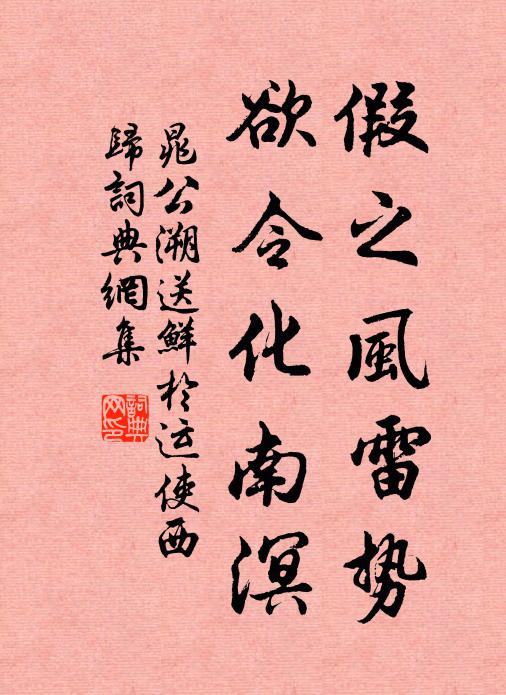 假之風雷势
欲令化南溟
晁公溯送鮮於运使西
歸詞典網集
詞典网印